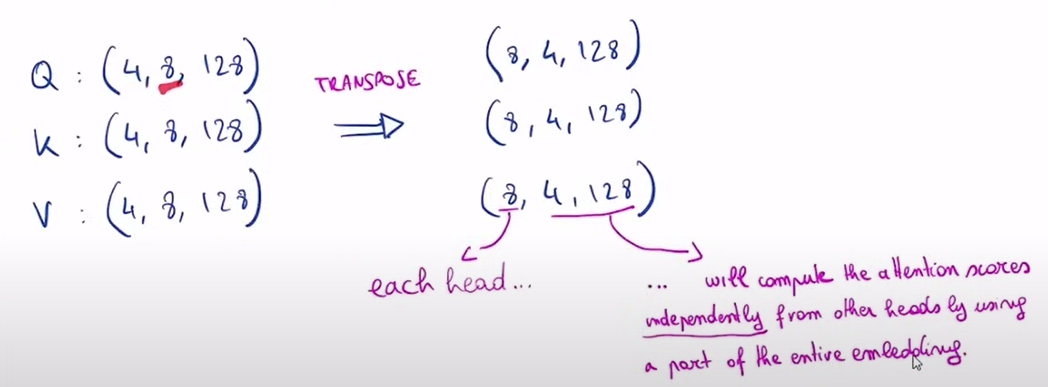 Q : (4, 8, 128)
K : (4, 8, 128)
V : (4, 8, 128)
TRANSPOSE
(8, 4, 128)
(8, 4, 128)
(8, 4, 128)
each head...
... will compute the attention scores
independently from other heads by using
a part of the entire embedding.